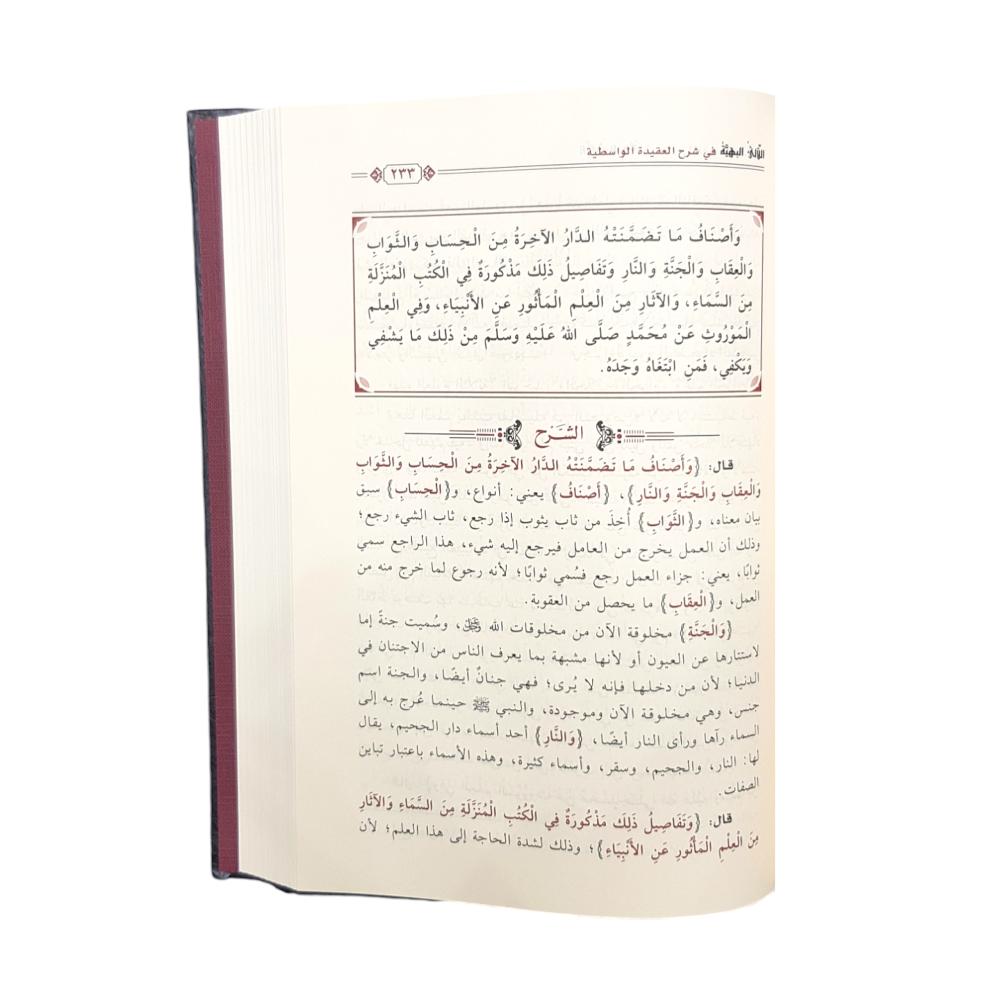 اللآلئ البهية في شرح العقيدة الواسطية
٢٣٣
وَأَصْنَافُ مَا تَضَمَّنَتْهُ الدَّارُ الآخِرَةُ مِنَ الْحِسَابِ وَالثَّوَابِ
وَالْعِقَابِ وَالْجَنَّةِ وَالنَّارِ وَتَفَاصِيلُ ذَلِكَ مَذْكُورَةٌ فِي الْكُتُبِ الْمُنَزَّلَةِ
مِنَ السَّمَاءِ، وَالآثَارِ مِنَ الْعِلْمِ الْمَأْثُورِ عَنِ الأَنْبِيَاءِ، وَفِي الْعِلْمِ
الْمَوْرُوثِ عَنْ مُحَمَّدٍ صَلَّى اللهُ عَلَيْهِ وَسَلَّمَ مِنْ ذَلِكَ مَا يَشْفِي
وَيَكْفِي، فَمَنِ ابْتَغَاهُ وَجَدَهُ.
الشَّرْح
قال: {وَأَصْنَافُ مَا تَضَمَّنَتْهُ الدَّارُ الآخِرَةُ مِنَ الْحِسَابِ وَالثَّوَابِ
وَالْعِقَابِ وَالْجَنَّةِ وَالنَّارِ}، {أَصْنَافُ} يعني: أنواع، و{الْحِسَابِ} سبق
بيان معناه، و{الثَّوَابِ} أُخِذَ من ثاب يثوب إذا رجع، ثاب الشيء رجع؛
وذلك أن العمل يخرج من العامل فيرجع إليه شيء، هذا الراجع سمي
ثوابًا، يعني: جزاء العمل رجع فسُمي ثوابًا؛ لأنه رجوع لما خرج منه من
العمل، و{الْعِقَابِ} ما يحصل من العقوبة.
{وَالْجَنَّةِ} مخلوقة الآن من مخلوقات الله ﷻ، وسُميت جنةً إما
لاستتارها عن العيون أو لأنها مشبهة بما يعرف الناس من الاجتنان في
الدنيا؛ لأن من دخلها فإنه لا يُرى؛ فهي جنانٌ أيضًا، والجنة اسم
جنس، وهي مخلوقة الآن وموجودة، والنبي ﷺ حينما عُرج به إلى
السماء رآها ورأى النار أيضًا، {وَالنَّارِ} أحد أسماء دار الجحيم، يقال
لها: النار، والجحيم، وسقر، وأسماء كثيرة، وهذه الأسماء باعتبار تباين
الصفات.
قال: {وَتَفَاصِيلُ ذَلِكَ مَذْكُورَةٌ فِي الْكُتُبِ الْمُنَزَّلَةِ مِنَ السَّمَاءِ وَالآثَارِ
مِنَ الْعِلْمِ الْمَأْثُورِ عَنِ الأَنْبِيَاءِ}؛ وذلك لشدة الحاجة إلى هذا العلم؛ لأن